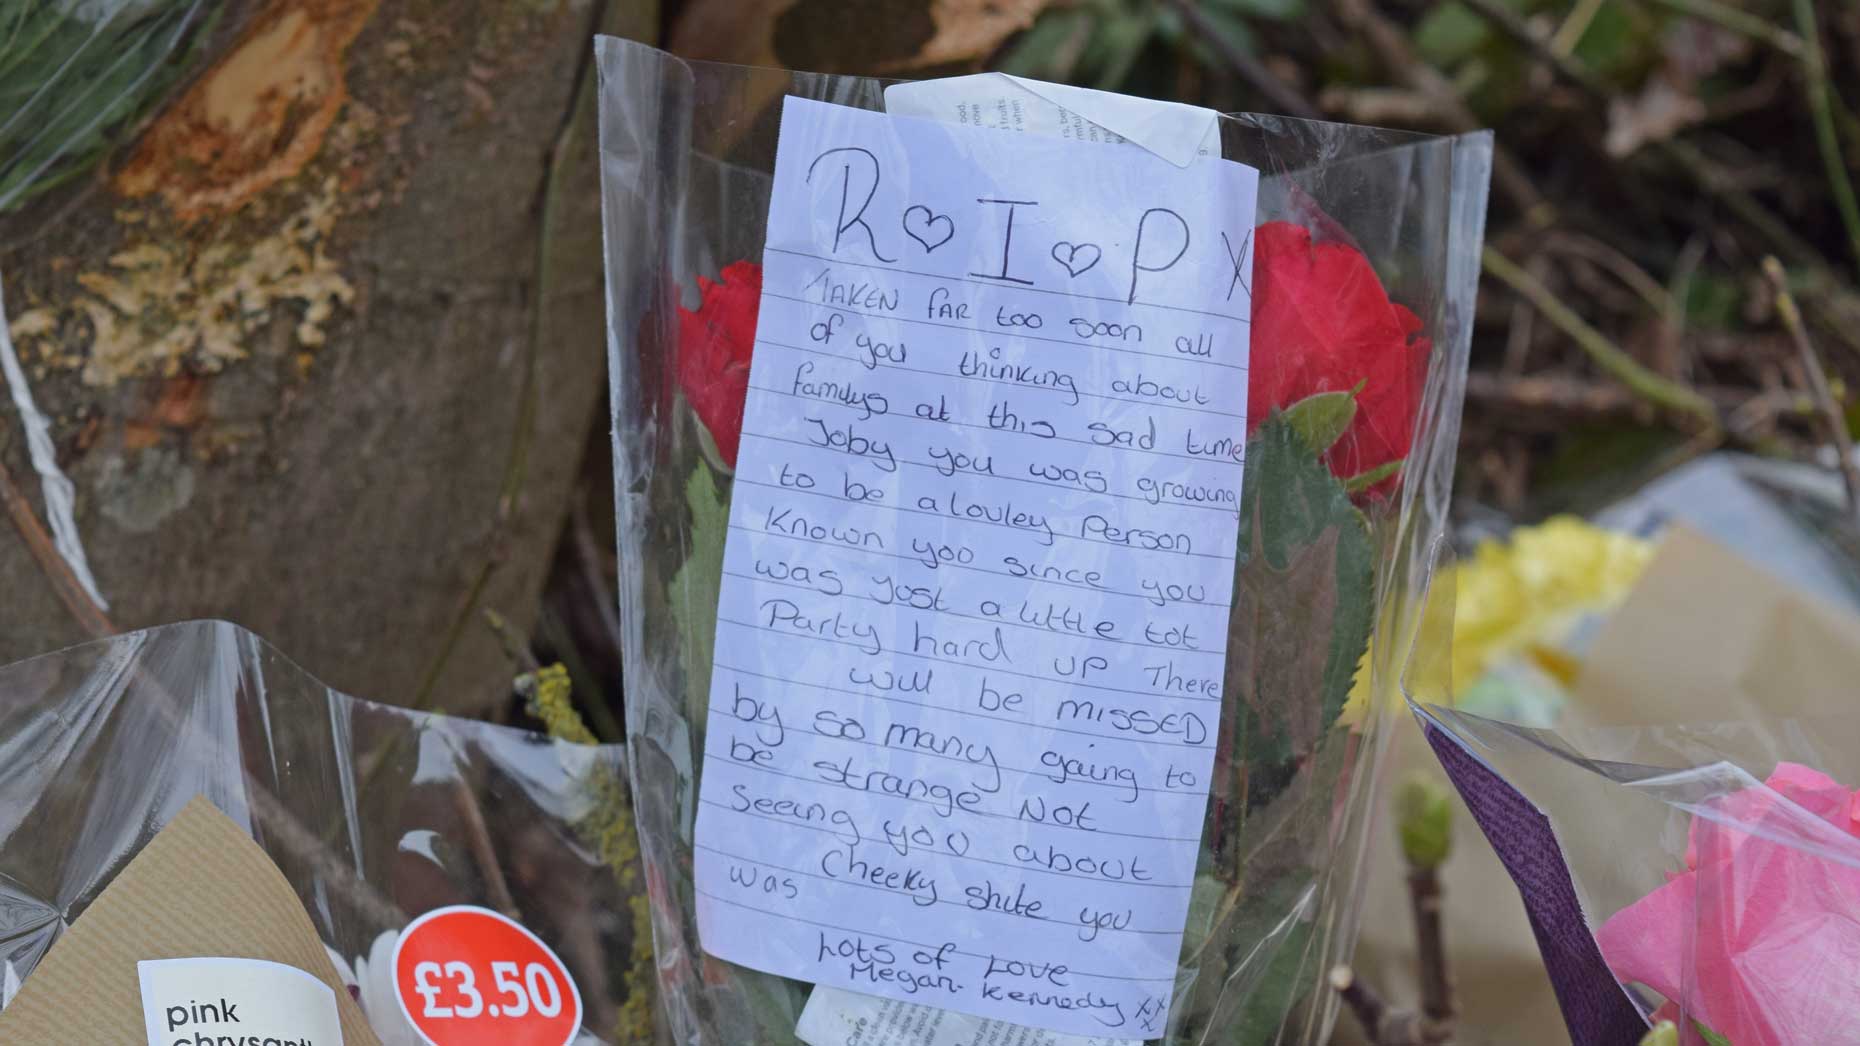 R♡I♡P X
TAKEN FAR too soon all
of you thinking about
familys at this sad time
Joby you was growing
to be a lovley Person
Known yoo since you
was just a little tot
Party hard UP There
will be MISSED
by so many going to
be strange Not
Seeing you about
Cheeky shite you
was
Lots of Love
Megan. Kennedy xxx
£3.50
pink